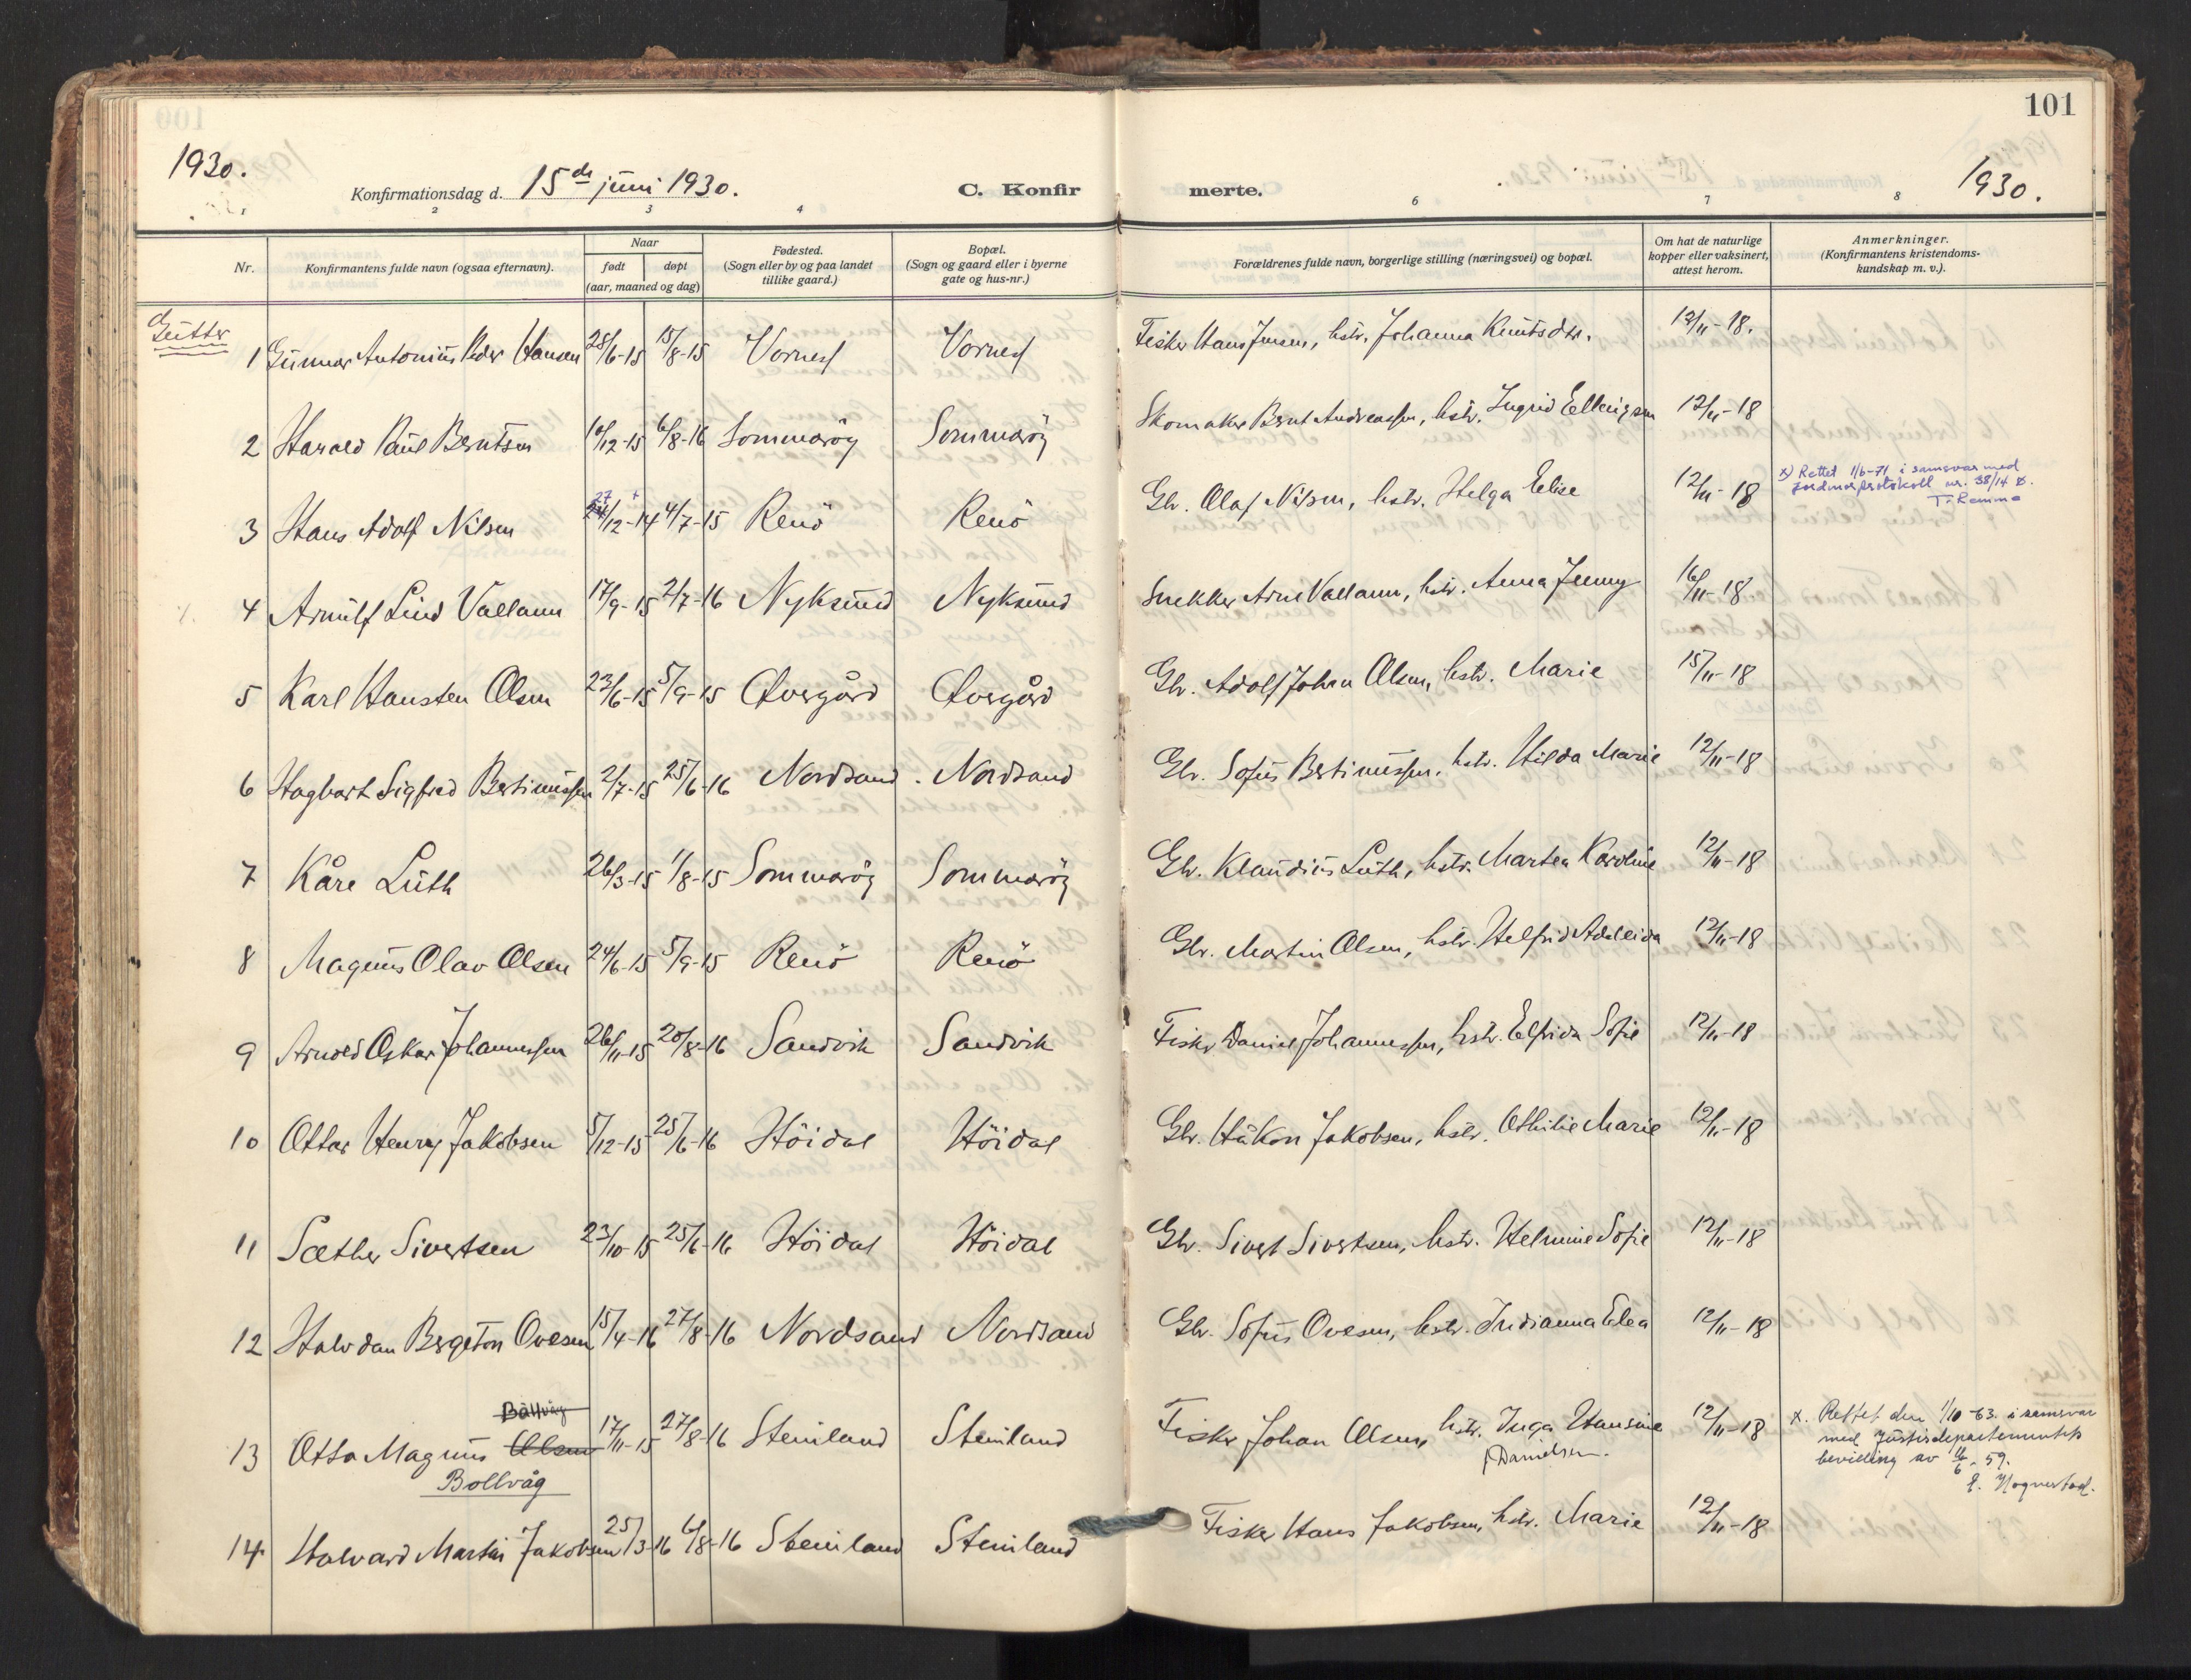 101
1930.
Konfirmationsdag d. 15de juni 1930.
C. Konfirmerte.
1930.
1 2 3 4 6 7 8
Nr.
Konfirmantens fulde navn (ogsaa efternavn).
Naar
født døpt
(aar, maaned og dag)
Fødested.
(Sogn eller by og paa landet
tillike gaard.)
Bopæl.
(Sogn og gaard eller i byerne
gate og hus-nr.)
Forældrenes fulde navn, borgerlige stilling (næringsvei) og bopæl.
Om hat de naturlige
kopper eller vaksinert,
attest herom.
Anmerkninger.
(Konfirmantens kristendoms-
kundskap m. v.).
Gutter
1 Gunnar Antonius Peder Hansen 28/6-15 15/8-15 Vornes Vornes Fisker Hans Jensen, hstr. Johanna Knutsdtr. 12/11-18.
2 Harald Paul Berntsen /12-15 6/8-16 Sommarøy Sommarøy Skomaker Bernt Andreassen, hstr. Ingrid Ellingsen 12/11-18
3 Hans Adolf Nilsen 27/12-14 4/7-15 Renö Renö Gbr. Olaf Nilsen, hstr. Helga Elise 12/11-18
x) Rettet 1/6-71 i samsvar med
jordmorprotokoll nr. 38/14
4 Arnulf Lind Vallann 17/9-15 2/7-16 Nyksund Nyksund Snekker Arne Vallann, hstr. Anna Jenny 16/11-18
5 Karl Hansten Olsen 23/6-15 5/9-15 Overgård Overgård Gbr. Adolf Johan Olsen, hstr. Marie 15/11-18
6 Hagbart Sigfred Bertinussen 2/7-15 25/6-16 Nordsand Nordsand Gbr. Sofus Bertinussen, hstr. Hilda Marie 12/11-18
7 Kåre Luth 26/3-15 1/8-15 Sommarøy Sommarøy Gbr. Klaudius Luth, hstr. Martea Karoline 12/11-18
8 Magnus Olav Olsen 24/6-15 5/9-15 Renö Renö Gbr. Martin Olsen, hstr. Helfrid Adeleida 12/11-18
9 Arnold Oskar Johannessen 26/11-15 20/8-16 Sandvik Sandvik Fisker Daniel Johannessen, hstr. Elfrida Sofie 12/11-18
10 Ottar Henry Jakobsen 5/12-15 25/6-16 Höidal Höidal Gbr. Håkon Jakobsen, hstr. Othilie Marie 12/11-18
11 Sæther Sivertsen 23/10-15 25/6-16 Höidal Höidal Gbr. Sivert Sivertsen, hstr. Helmine Sofie 12/11-18
12 Halvdan Bergeton Ovesen 15/4-16 27/8-16 Nordsand Nordsand Gbr. Sofus Ovesen, hstr. Indianna Elea 12/11-18
Bällvåg
13 Otto Magnus Olsen 17/11-15 27/8-16 Steinland Steinland Fisker Johan Olsen, hstr. Inga Hansine 12/11-18
Bollvåg
f. Danielsen.
x. Rettet den 1/10-63. i samsvar
med Justisdepartementets
bevilling av /6-59.
14 Halvard Martin Jakobsen 25/3-16 6/8-16 Steinland Steinland Fisker Hans Jakobsen, hstr. Marie 12/11-18